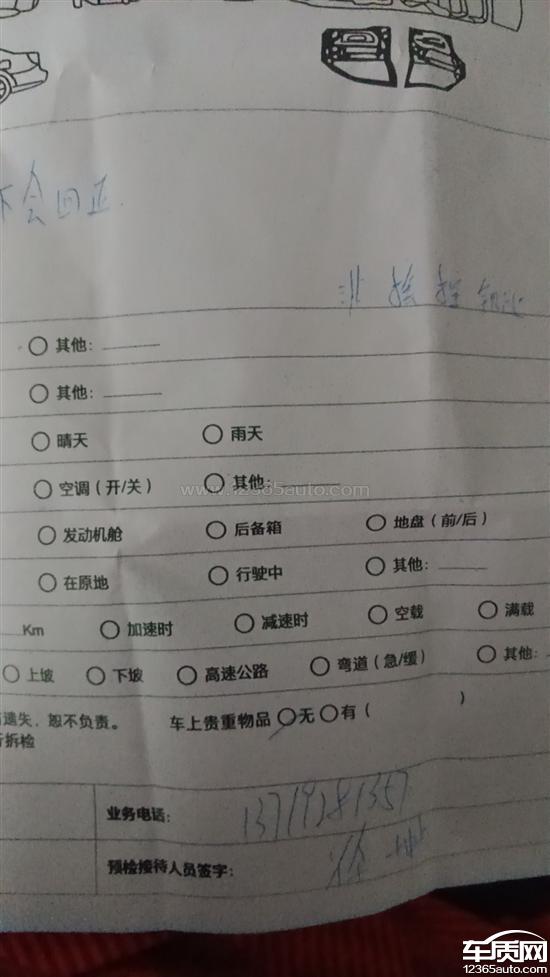 不会回正
○ 其他：
○ 其他：
○ 晴天 ○ 雨天
○ 空调（开/关） ○ 其他：
www.12365auto.com
○ 发动机舱 ○ 后备箱 ○ 地盘（前/后）
○ 在原地 ○ 行驶中 ○ 其他：
Km ○ 加速时 ○ 减速时 ○ 空载 ○ 满载
○ 上坡 ○ 下坡 ○ 高速公路 ○ 弯道（急/缓） ○ 其他：
遗失、恕不负责。 车上贵重物品 ○无 ○有（ ）
拆检
业务电话：
预检接待人员签字：
车质网
12365auto.com